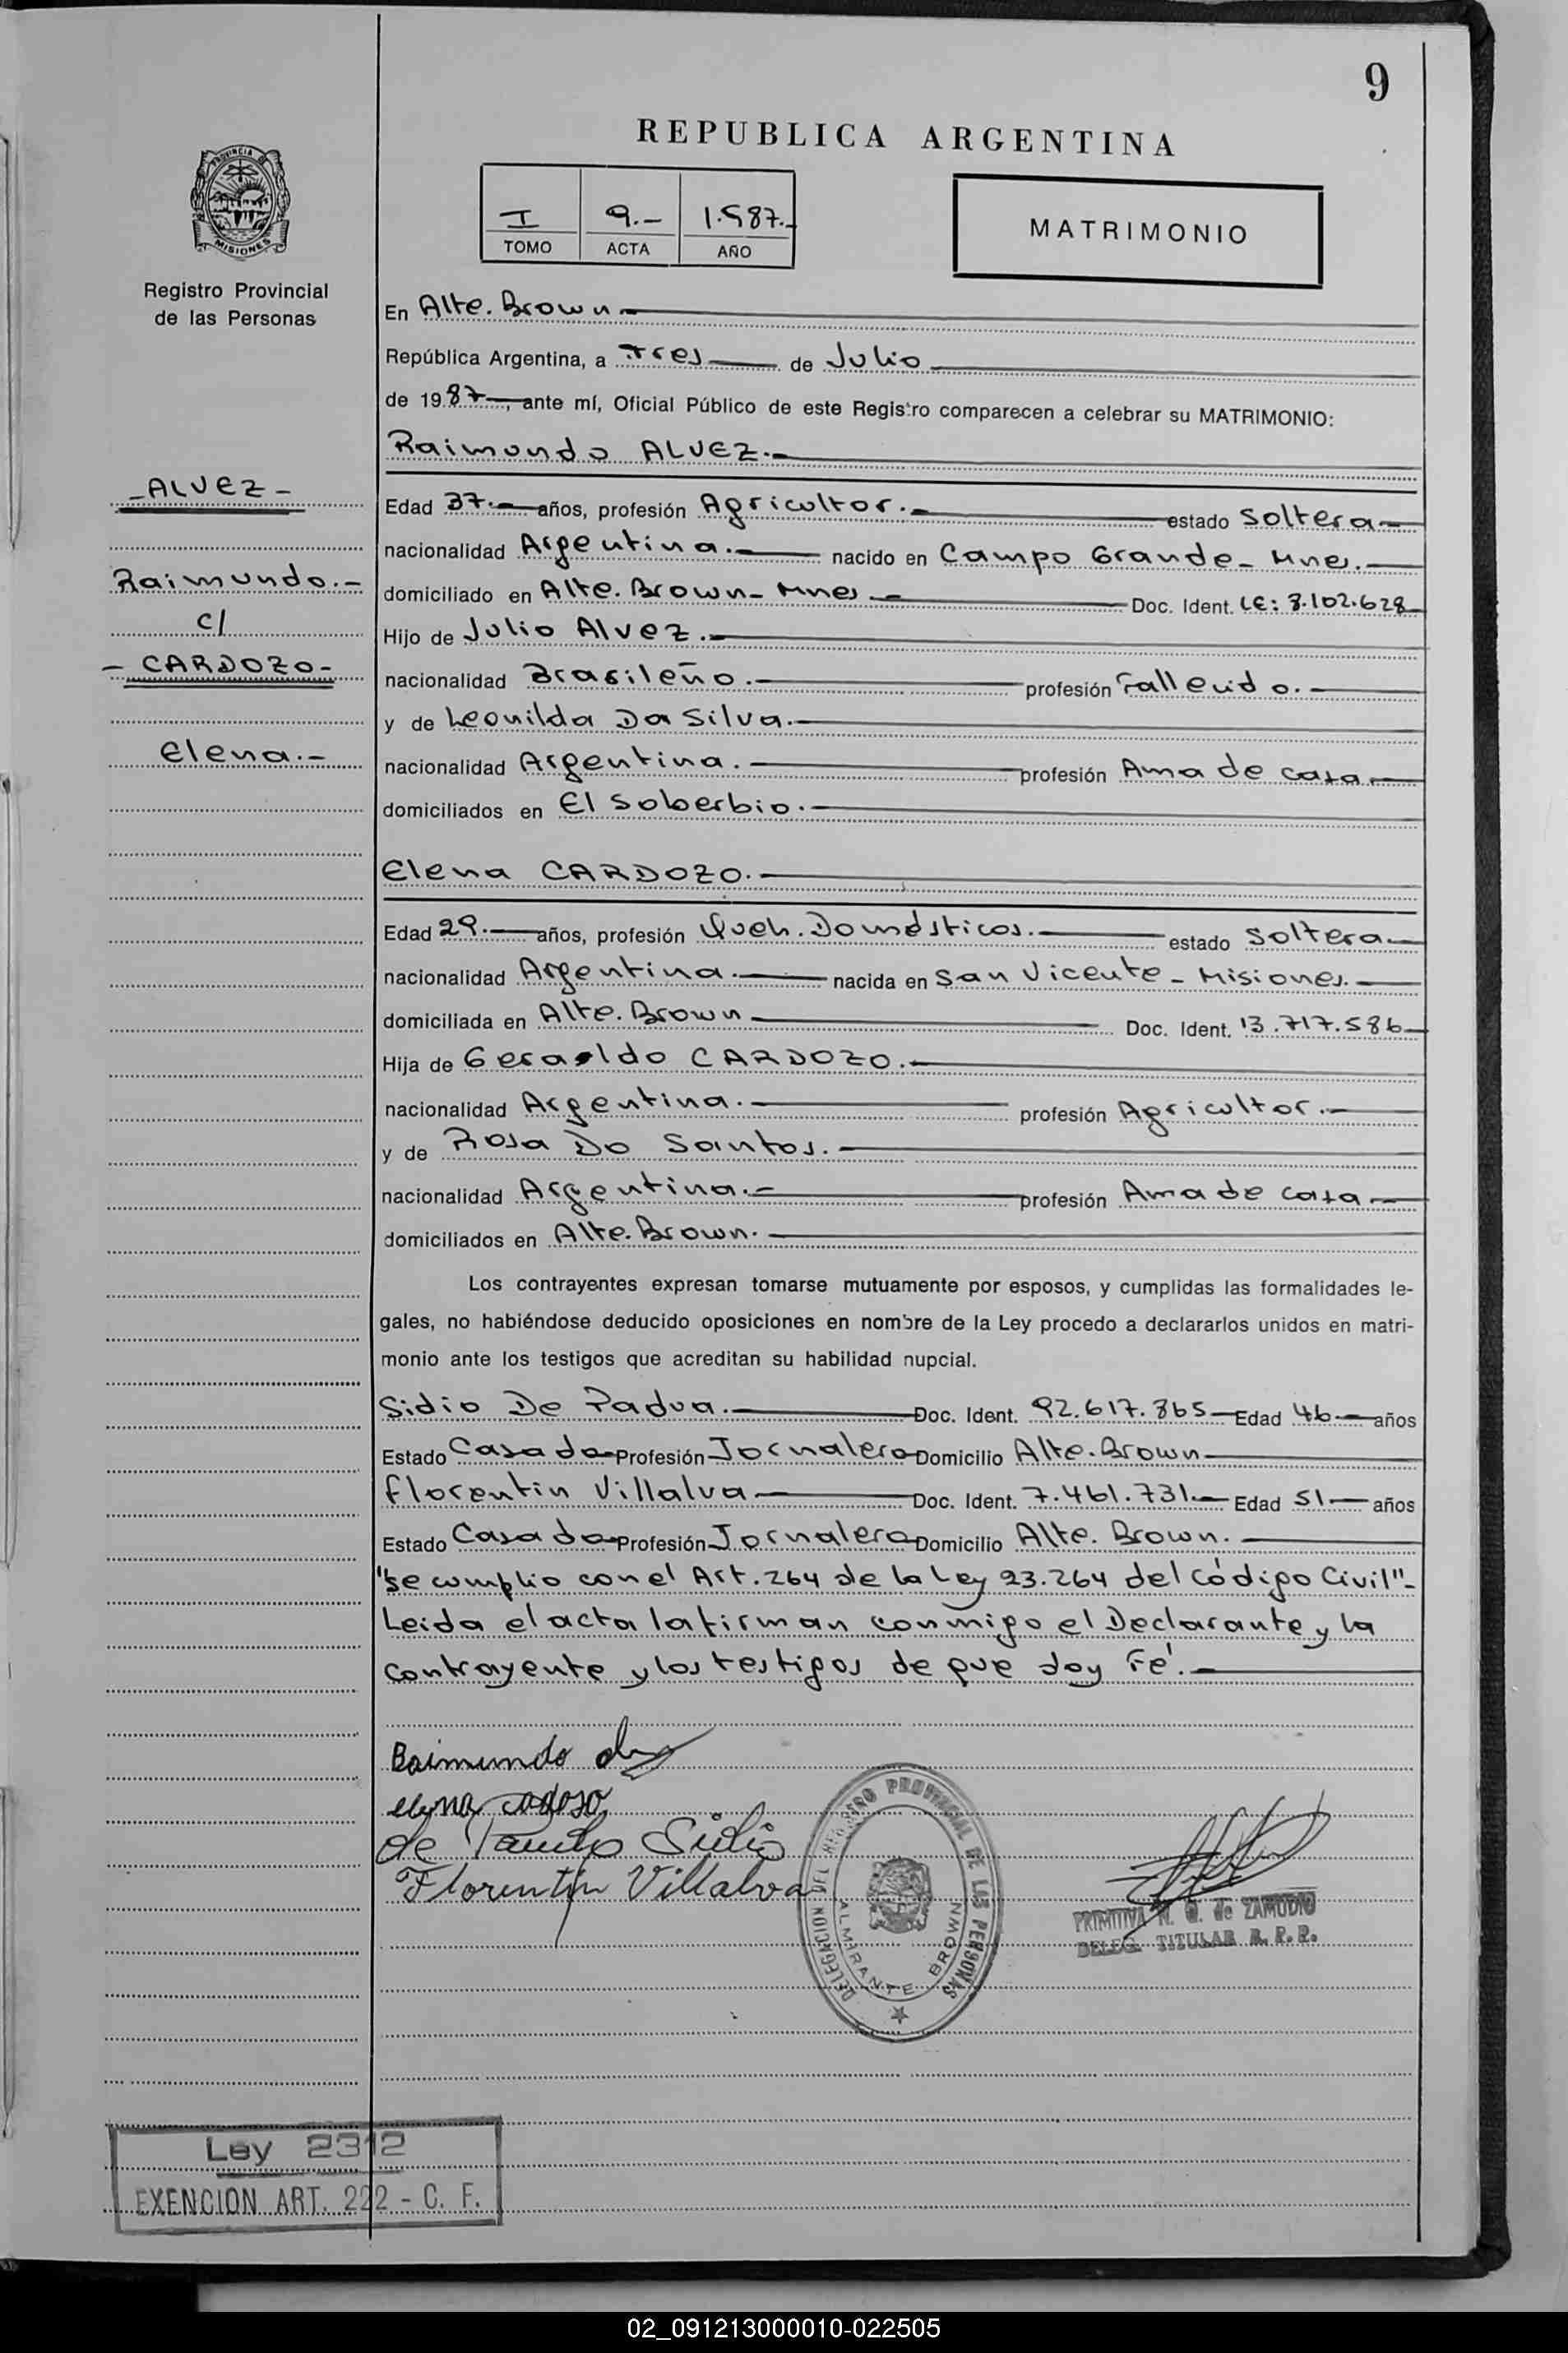 9
REPUBLICA ARGENTINA
I 9.- 1.987.-
TOMO ACTA AÑO
MATRIMONIO
PROVINCIA DE
MISIONES
Registro Provincial
de las Personas
-ALVEZ-
Raimundo.-
c/
-CARDOZO-
Elena.-
En Alte. Brown
República Argentina, a tres de Julio
de 1987, ante mí, Oficial Público de este Registro comparecen a celebrar su MATRIMONIO:
Raimundo ALVEZ.-
Edad 37.- años, profesión Agricultor.- estado Soltera
nacionalidad Argentina.- nacido en Campo Grande- Mnes.-
domiciliado en Alte. Brown- Mnes.- Doc. Ident. LE: 8.102.628
Hijo de Julio Alvez.-
nacionalidad Brasileño.- profesión Fallecido.-
y de Leonilda Da Silva.-
nacionalidad Argentina.- profesión Ama de casa
domiciliados en El Soberbio.-
Elena CARDOZO.-
Edad 29.- años, profesión Queh. Domésticos.- estado Soltera
nacionalidad Argentina.- nacida en San Vicente - Misiones.-
domiciliada en Alte. Brown Doc. Ident. 13.717.586
Hija de Geraldo CARDOZO.-
nacionalidad Argentina.- profesión Agricultor.-
y de Rosa Do Santos.-
nacionalidad Argentina.- profesión Ama de casa
domiciliados en Alte. Brown.-
Los contrayentes expresan tomarse mutuamente por esposos, y cumplidas las formalidades le-
gales, no habiéndose deducido oposiciones en nombre de la Ley procedo a declararlos unidos en matri-
monio ante los testigos que acreditan su habilidad nupcial.
Sidio De Padua.- Doc. Ident. 92.617.865 Edad 46 años
Estado Casado Profesión Jornalero Domicilio Alte. Brown
Florentin Villalva Doc. Ident. 7.461.731.- Edad 51 años
Estado Casado Profesión Jornalero Domicilio Alte. Brown.-
"Se cumplio con el Art. 264 de la Ley 23.264 del Código Civil"-
Leida el acta la firman conmigo el Declarante y la
Contrayente y los testigos de que doy Fé.-
Raimundo
elena cadoso
de Sidio
Florentin Villalva
DELEGACION DEL REGISTRO PROVINCIAL DE LAS PERSONAS
ALMIRANTE BROWN
PRIMITIVA N. G. de ZAMUDIO
DELEG. TITULAR R. P. P.
Ley 2312
EXENCION ART. 222 - C. F.
02_091213000010-022505